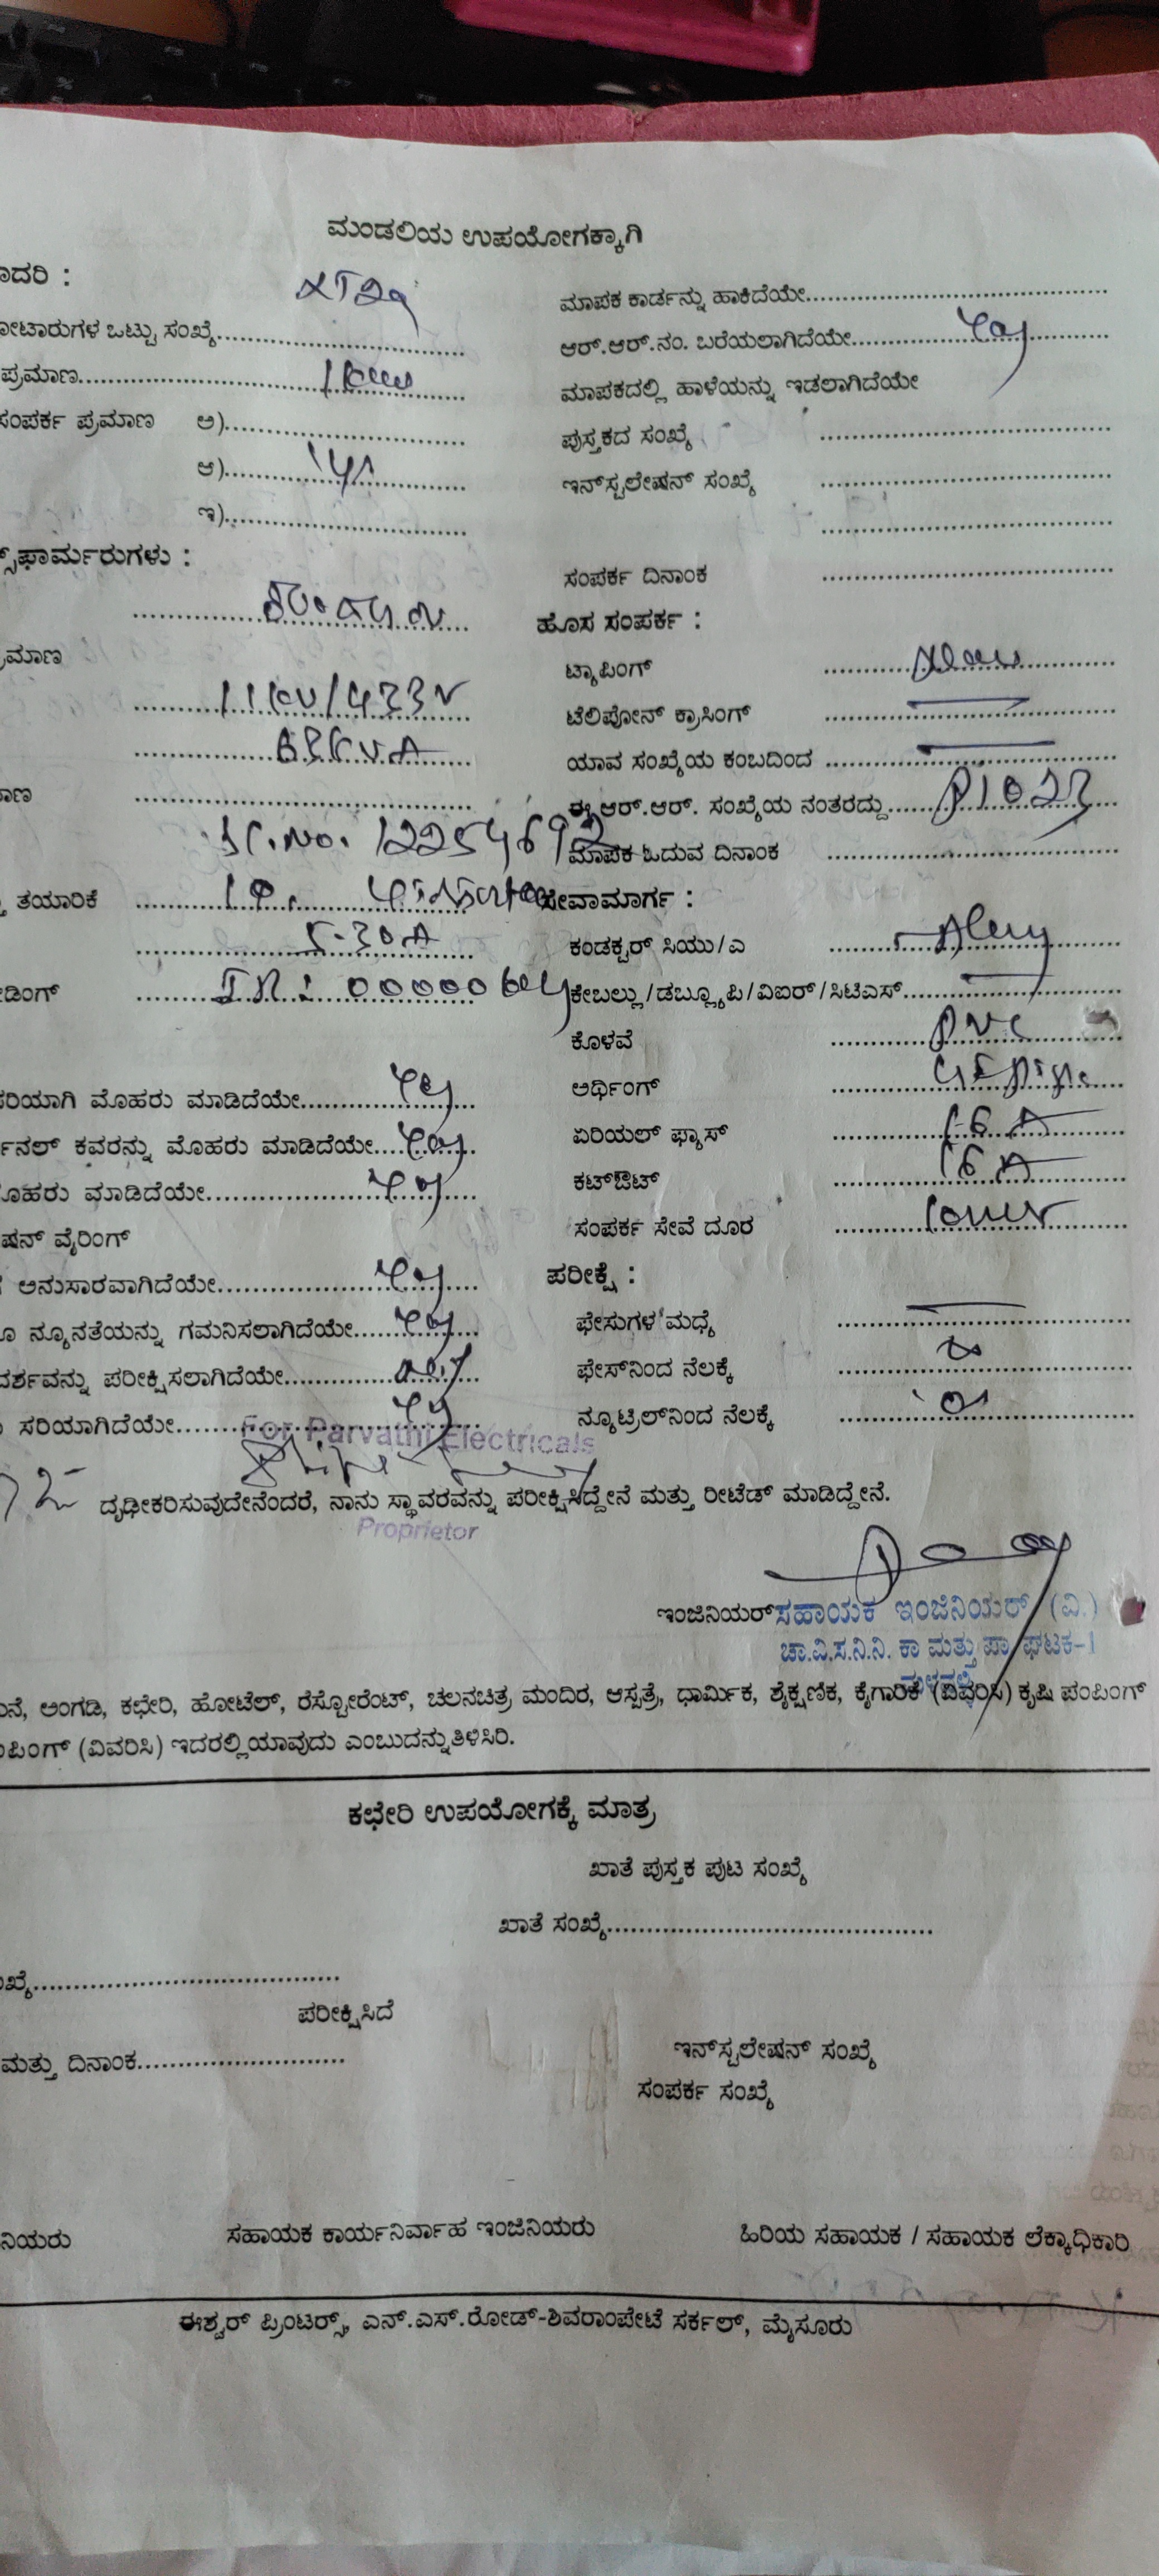 ಮಂಡಲಿಯ ಉಪಯೋಗಕ್ಕಾಗಿ
ಾದರಿ :
ೋಟಾರುಗಳ ಒಟ್ಟು ಸಂಖ್ಯೆ
ಪ್ರಮಾಣ
ಸಂಪರ್ಕ ಪ್ರಮಾಣ ಅ)
ಆ)
ಇ)
ಸ್‌ಫಾರ್ಮರುಗಳು :
್ರಮಾಣ
11KV/433V
63KVA
ಮಾಣ
Sl.No. 12254692
ತಯಾರಿಕೆ
5-30A
ೀಡಿಂಗ್ IR:
ಸರಿಯಾಗಿ ಮೊಹರು ಮಾಡಿದೆಯೇ yes
ರ್ಮಿನಲ್ ಕವರನ್ನು ಮೊಹರು ಮಾಡಿದೆಯೇ yes
ಮೊಹರು ಮಾಡಿದೆಯೇ yes
ಷನ್ ವೈರಿಂಗ್
ಅನುಸಾರವಾಗಿದೆಯೇ yes
ನ್ಯೂನತೆಯನ್ನು ಗಮನಿಸಲಾಗಿದೆಯೇ yes
ಪರೀಕ್ಷಿಸಲಾಗಿದೆಯೇ
ಸರಿಯಾಗಿದೆಯೇ yes
ಮಾಪಕ ಕಾರ್ಡನ್ನು ಹಾಕಿದೆಯೇ
ಆರ್.ಆರ್.ನಂ. ಬರೆಯಲಾಗಿದೆಯೇ yes
ಮಾಪಕದಲ್ಲಿ ಹಾಳೆಯನ್ನು ಇಡಲಾಗಿದೆಯೇ
ಪುಸ್ತಕದ ಸಂಖ್ಯೆ
ಇನ್‌ಸ್ಟಲೇಷನ್ ಸಂಖ್ಯೆ
ಸಂಪರ್ಕ ದಿನಾಂಕ
ಹೊಸ ಸಂಪರ್ಕ :
ಟ್ಯಾಪಿಂಗ್
ಟೆಲಿಪೋನ್ ಕ್ರಾಸಿಂಗ್
ಯಾವ ಸಂಖ್ಯೆಯ ಕಂಬದಿಂದ
ಈ ಆರ್.ಆರ್. ಸಂಖ್ಯೆಯ ನಂತರದ್ದು P1023
ಮಾಪಕ ಓದುವ ದಿನಾಂಕ
ಸೇವಾಮಾರ್ಗ :
ಕಂಡಕ್ಟರ್ ಸಿಯು/ಎ
ಕೇಬಲ್ಲು/ಡಬ್ಲ್ಯೂಪಿ/ವಿಐರ್/ಸಿಟಿಎಸ್
ಕೊಳವೆ PVC
ಅರ್ಥಿಂಗ್
ಏರಿಯಲ್ ಫ್ಯಾಸ್ 16 A
ಕಟ್‌ಔಟ್ 16 A
ಸಂಪರ್ಕ ಸೇವೆ ದೂರ
ಪರೀಕ್ಷೆ :
ಫೇಸುಗಳ ಮಧ್ಯೆ
ಫೇಸ್‌ನಿಂದ ನೆಲಕ್ಕೆ
ನ್ಯೂಟ್ರಿಲ್‌ನಿಂದ ನೆಲಕ್ಕೆ
For Parvathi Electricals
ದೃಢೀಕರಿಸುವುದೇನೆಂದರೆ, ನಾನು ಸ್ಥಾವರವನ್ನು ಪರೀಕ್ಷಿಸಿದ್ದೇನೆ ಮತ್ತು ರೀಟೆಡ್ ಮಾಡಿದ್ದೇನೆ.
Proprietor
ಇಂಜಿನಿಯರ್ ಸಹಾಯಕ ಇಂಜಿನಿಯರ್ (ವಿ.)
ಚಾ.ವಿ.ಸ.ನಿ.ನಿ. ಕಾ ಮತ್ತು ಪಾ ಘಟಕ-1
ಮನೆ, ಅಂಗಡಿ, ಕಛೇರಿ, ಹೋಟೆಲ್, ರೆಸ್ಟೋರೆಂಟ್, ಚಲನಚಿತ್ರ ಮಂದಿರ, ಆಸ್ಪತ್ರೆ, ಧಾರ್ಮಿಕ, ಶೈಕ್ಷಣಿಕ, ಕೈಗಾರಿಕೆ (ವಿವರಿಸಿ) ಕೃಷಿ ಪಂಪಿಂಗ್
ಂಪಿಂಗ್ (ವಿವರಿಸಿ) ಇದರಲ್ಲಿಯಾವುದು ಎಂಬುದನ್ನು ತಿಳಿಸಿರಿ.
ಕಛೇರಿ ಉಪಯೋಗಕ್ಕೆ ಮಾತ್ರ
ಖಾತೆ ಪುಸ್ತಕ ಪುಟ ಸಂಖ್ಯೆ
ಖಾತೆ ಸಂಖ್ಯೆ
ಂಖ್ಯೆ
ಪರೀಕ್ಷಿಸಿದೆ
ಮತ್ತು ದಿನಾಂಕ
ಇನ್‌ಸ್ಟಲೇಷನ್ ಸಂಖ್ಯೆ
ಸಂಪರ್ಕ ಸಂಖ್ಯೆ
ನಿಯರು ಸಹಾಯಕ ಕಾರ್ಯನಿರ್ವಾಹ ಇಂಜಿನಿಯರು ಹಿರಿಯ ಸಹಾಯಕ / ಸಹಾಯಕ ಲೆಕ್ಕಾಧಿಕಾರಿ
ಈಶ್ವರ್ ಪ್ರಿಂಟರ್ಸ್, ಎನ್.ಎಸ್.ರೋಡ್-ಶಿವರಾಂಪೇಟೆ ಸರ್ಕಲ್, ಮೈಸೂರು